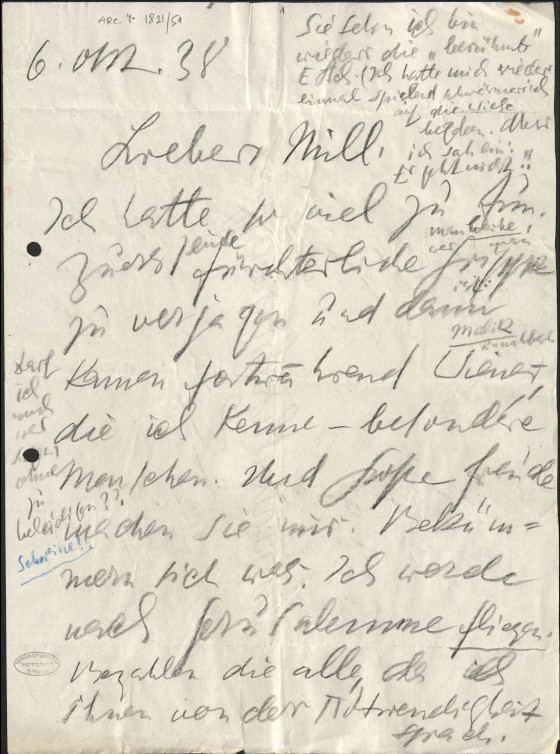 ARC. 4° 1821/51
Sie sehn ich bin
wieder die „berühmte"
(Ich hatte mich wieder
einmal spielend schwärmerisch
auf die Wiese
begeben. Aber
ich sah ein:
Es geht nicht!"
6. Okt. 38
Lieber Mill.
Ich hatte so viel zu tun.
Zuerst eine fürchterliche Grippe
zu verjagen und dann
kamen fortwährend Wiener,
die ich kenne – besondere
Menschen. Und große Freude
machen Sie mir. Beküm=
mern sich was. Ich werde
nach Jerusalemme fliegen.
Bezahlen die alle, da ich
ihnen von der Notwendigkeit
sprach.
Darf
ich
und
wer
ohne
zu
beleidigen??